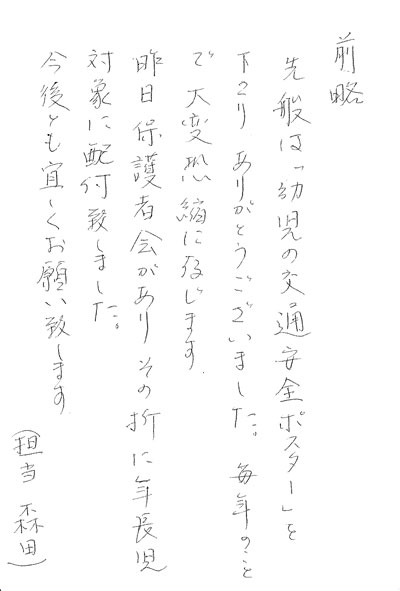 前略
先般は「幼児の交通安全ポスター」を
下さり ありがとうございました。 毎年のこと
で 大変恐縮に存じます.
昨日保護者会があり その折に年長児
対象に配付致しました。
今後とも宜しくお願い致します.
(担当 森田)